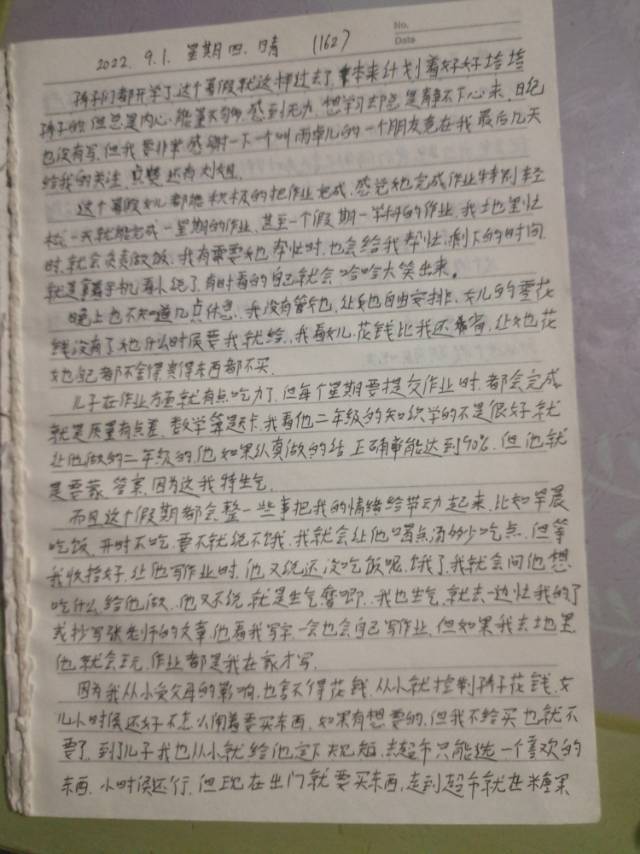 No.
Date
2022. 9.1. 星期四. 晴 (162)
孩子们都开学了,这个暑假就这样过去了,本来计划着好好培培
孩子的,但总是内心能量不够,感到无力,想学习却总是静不下心来,日记
也没有写,但我要非常感谢一下一个叫雨的一个朋友竟在我最后几天
给我的关注,还有刘姐.
这个暑假女儿都能积极的把作业完成,感觉她完成作业特别轻
松,一天就能完成一星期的作业,甚至一个假期一学科的作业,我地里忙
时,就会负责做饭,我有需要她帮忙时,也会给我帮忙,剩下的时间
就是拿着手机看小说了,有时看的自己就会哈哈大笑出来.
晚上也不知道几点休息,我没有管她,让她自由安排,女儿的零花
钱没有了,她什么时候要我就给,我看女儿花钱比我还省,让她花
她自己都不舍得,贵得东西都不买.
儿子在作业方面就有点吃力了,但每个星期要提交作业时,都会完成
就是质量有点差,数学算题卡,我看他二年级的知识学的不是很好,就
让他做的二年级的,他如果认真做的话,正确率能达到90%,但他就
是要蒙答案,因为这我特生气.
而且这个假期都会整一些事把我的情绪给带动起来,比如早晨
吃饭,开时不吃,要不就说不饿,我就会让他喝点汤的少吃点,但等
我收拾好,让他写作业时,他又说还没吃饭呢,饿了,我就会问他想
吃什么给他做,他又不说,就是生气唧,我也生气,就去一边忙我的了
或抄写张老师的文章,他看我写字一会也会自己写作业,但如果我去地里
他就会玩,作业都是我在家才写.
因为我从小受父母的影响,也舍不得花钱,从小就控制孩子花钱,女
儿小时候还好不怎么闹着要买东西,如果有想要的,但我不给买也就不
要了,到了儿子我也从小就给他定下规矩,去超市只能选一个喜欢的
东西,小时候还行,但现在出门就要买东西,走到超市就在糖果